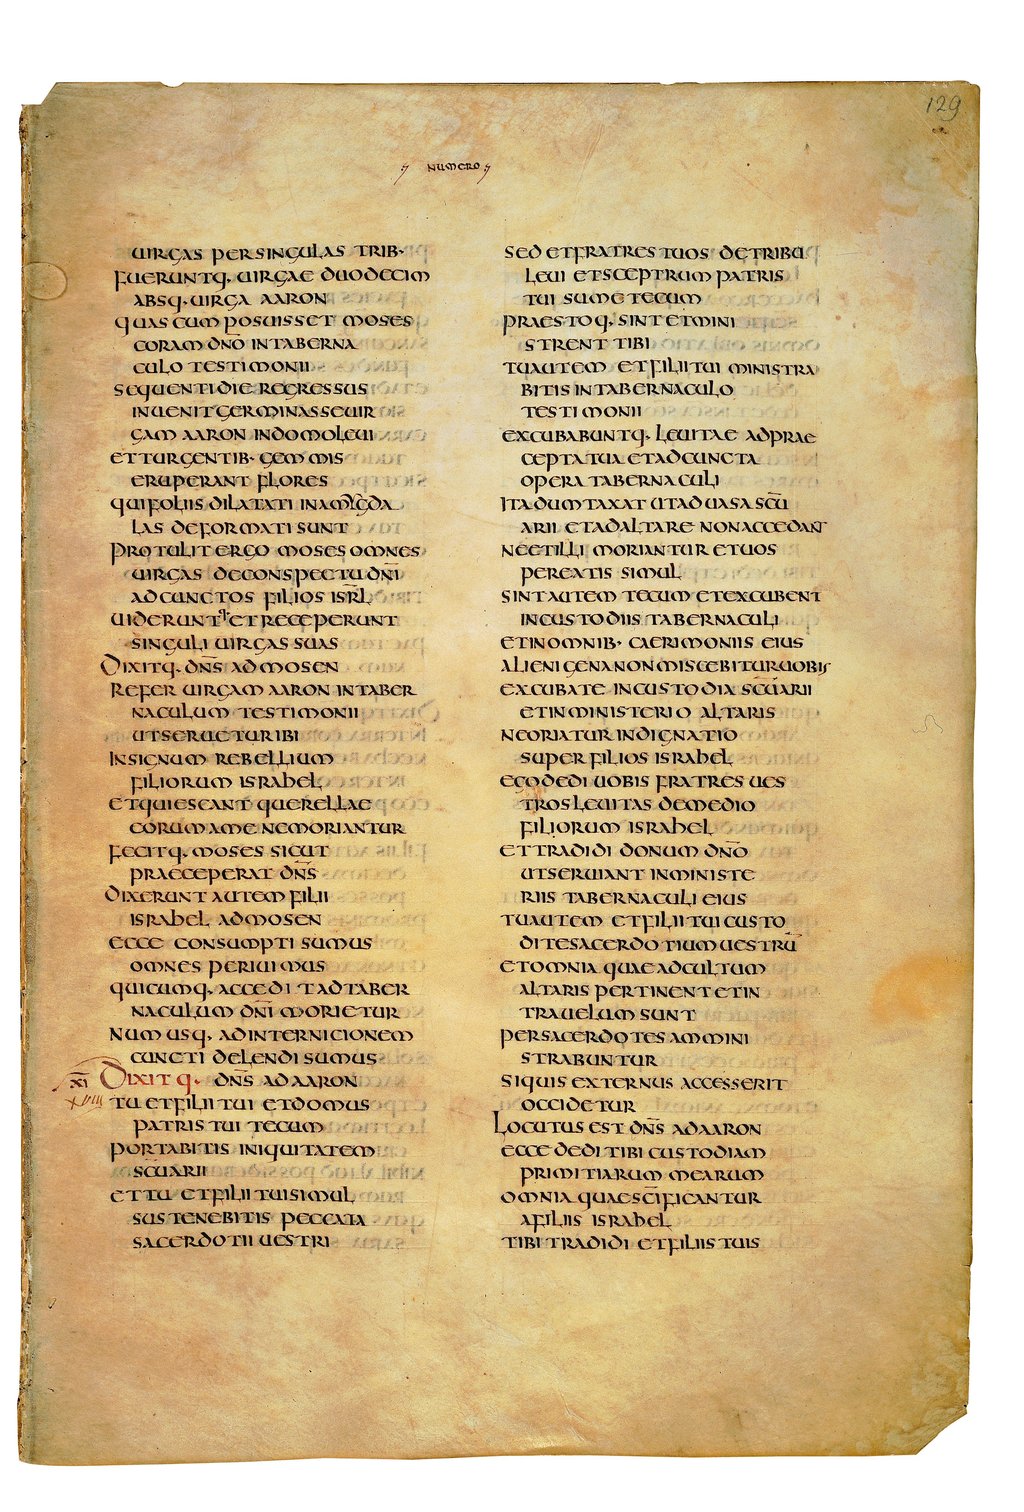 129
NUMERO
UIRGAS PER SINGULAS TRIB·
FUERUNTQ· UIRGAE DUODECIM
ABSQ· UIRGA AARON
QUAS CUM POSUISSET MOSES
CORAM DN̄O IN TABERNA
CULO TESTIMONII
SEQUENTI DIE REGRESSUS
INUENIT GERMINASSE UIR
GAM AARON IN DOMO LEUI
ET TURGENTIB· GEMMIS
ERUPERANT FLORES
QUI FOLIIS DILATATI IN AMYGDA
LAS DEFORMATI SUNT
PROTULIT ERGO MOSES OMNES
UIRGAS DE CONSPECTU DN̄I
AD CUNCTOS FILIOS ISR̄L
UIDERUNTQ· ET RECEPERUNT
SINGULI UIRGAS SUAS
DIXITQ· DN̄S AD MOSEN
REFER UIRGAM AARON IN TABER
NACULUM TESTIMONII
UT SERUETUR IBI
IN SIGNUM REBELLIUM
FILIORUM ISRAHEL
ET QUIESCANT QUERELLAE
EORUM A ME NE MORIANTUR
FECITQ· MOSES SICUT
PRAECEPERAT DN̄S
DIXERUNT AUTEM FILII
ISRAHEL AD MOSEN
ECCE CONSUMPTI SUMUS
OMNES PERIUIMUS
QUICUMQ· ACCEDIT AD TABER
NACULUM DN̄I MORIETUR
NUM USQ· AD INTERNICIONEM
CUNCTI DELENDI SUMUS
X̄Ī DIXITQ· DN̄S AD AARON
XVIIII TU ET FILII TUI ET DOMUS
PATRIS TUI TECUM
PORTABITIS INIQUITATEM
SC̄UARII
ET TU ET FILII TUI SIMUL
SUSTENEBITIS PECCATA
SACERDOTII UESTRI
SED ET FRATRES TUOS DE TRIBU
LEUI ET SCEPTRUM PATRIS
TUI SUME TECUM
PRAESTOQ· SINT ET MINI
STRENT TIBI
TU AUTEM ET FILII TUI MINISTRA
BITIS IN TABERNACULO
TESTIMONII
EXCUBABUNTQ· LEUITAE AD PRAE
CEPTA TUA ET AD CUNCTA
OPERA TABERNACULI
ITA DUMTAXAT UT AD UASA SC̄U
ARII ET AD ALTARE NON ACCEDANT
NE ET ILLI MORIANTUR ET UOS
PEREATIS SIMUL
SINT AUTEM TECUM ET EXCUBENT
IN CUSTODIIS TABERNACULI
ET IN OMNIB· CAERIMONIIS EIUS
ALIENIGENA NON MISCEBITUR UOBIS
EXCUBATE IN CUSTODIA SC̄UARII
ET IN MINISTERIO ALTARIS
NE ORIATUR INDIGNATIO
SUPER FILIOS ISRAHEL
EGO DEDI UOBIS FRATRES UES
TROS LEUITAS DE MEDIO
FILIORUM ISRAHEL
ET TRADIDI DONUM DN̄O
UT SERUIANT IN MINISTE
RIIS TABERNACULI EIUS
TU AUTEM ET FILII TUI CUSTO
DITE SACERDOTIUM UESTRŪ
ET OMNIA QUAE AD CULTUM
ALTARIS PERTINENT ET IN
TRA UELUM SUNT
PER SACERDOTES AMMINI
STRABUNTUR
SI QUIS EXTERNUS ACCESSERIT
OCCIDETUR
LOCUTUS EST DN̄S AD AARON
ECCE DEDI TIBI CUSTODIAM
PRIMITIARUM MEARUM
OMNIA QUAE SC̄IFICANTUR
A FILIIS ISRAHEL
TIBI TRADIDI ET FILIIS TUIS